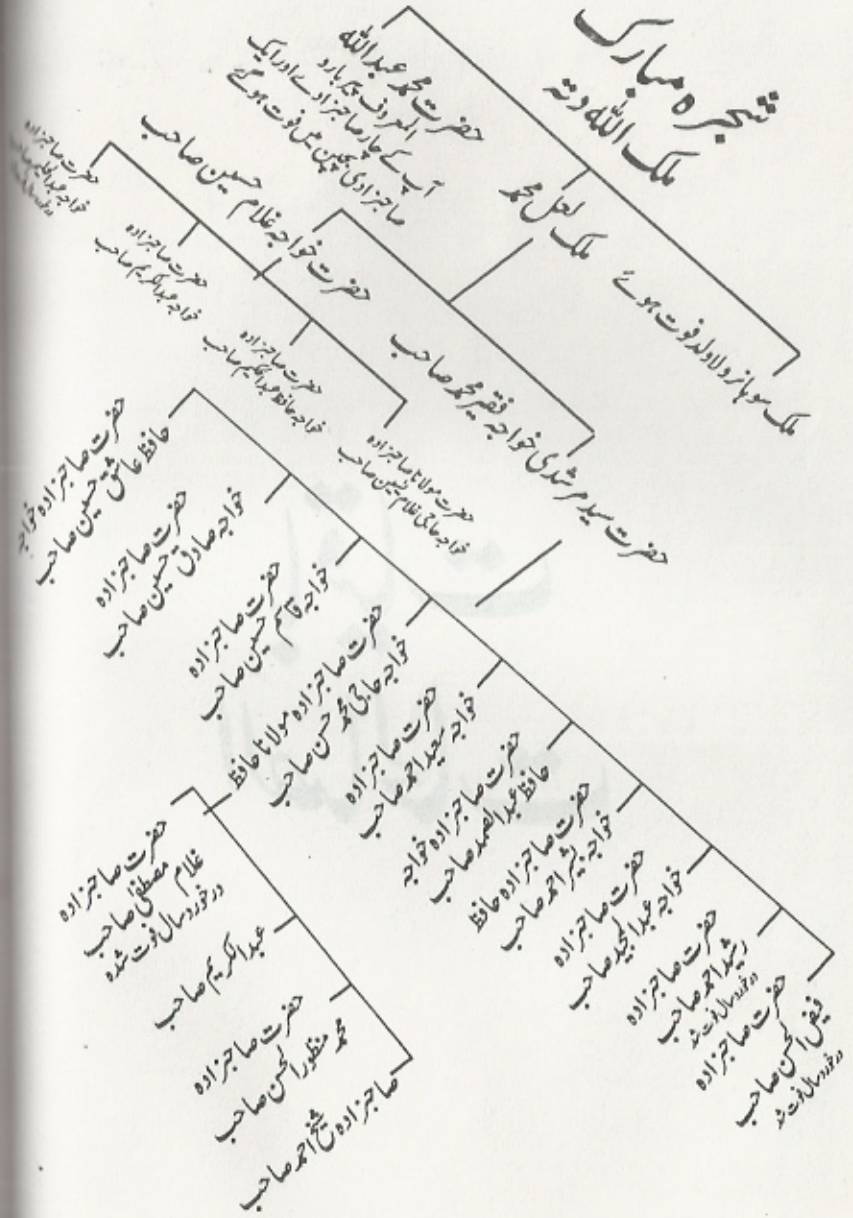 شجرہ مبارک
ملک اللہ دتہ
حضرت محمد عبداللہ
المعروف پیر بارو
آپ کے چار صاحبزادے اور ایک
صاحبزادی بچپن میں فوت ہو گئے
ملک لعل محمد
ملک سوہانرو لا ولد فوت ہوئے
حضرت خواجہ غلام حسین صاحب
حضرت سید مرشدی خواجہ فقیر محمد صاحب
حضرت صاحبزادہ
خواجہ صاحب
حضرت صاحبزادہ
خواجہ عبدالکریم صاحب
حضرت صاحبزادہ
خواجہ حافظ عبدالحکیم صاحب
حضرت مولانا صاحبزادہ
خواجہ حاجی غلام یٰسین صاحب
حضرت صاحبزادہ خواجہ
حافظ عاشق حسین صاحب
حضرت صاحبزادہ
خواجہ صادق حسین صاحب
حضرت صاحبزادہ
خواجہ قاسم حسین صاحب
حضرت صاحبزادہ مولانا حافظ
خواجہ حاجی محمد حسن صاحب
حضرت صاحبزادہ
خواجہ سعید احمد صاحب
حضرت صاحبزادہ خواجہ
حافظ عبدالصمد صاحب
حضرت صاحبزادہ حافظ
خواجہ بشیر احمد صاحب
حضرت صاحبزادہ
خواجہ عبدالمجید صاحب
حضرت صاحبزادہ
رشید احمد صاحب
در خورد سال فوت شد
حضرت صاحبزادہ
فیض الحسن صاحب
در خورد سال فوت شد
حضرت صاحبزادہ
غلام مصطفیٰ صاحب
در خورد سال فوت شدہ
عبدالکریم صاحب
حضرت صاحبزادہ
محمد منظور الحسن صاحب
صاحبزادہ شیخ احمد صاحب